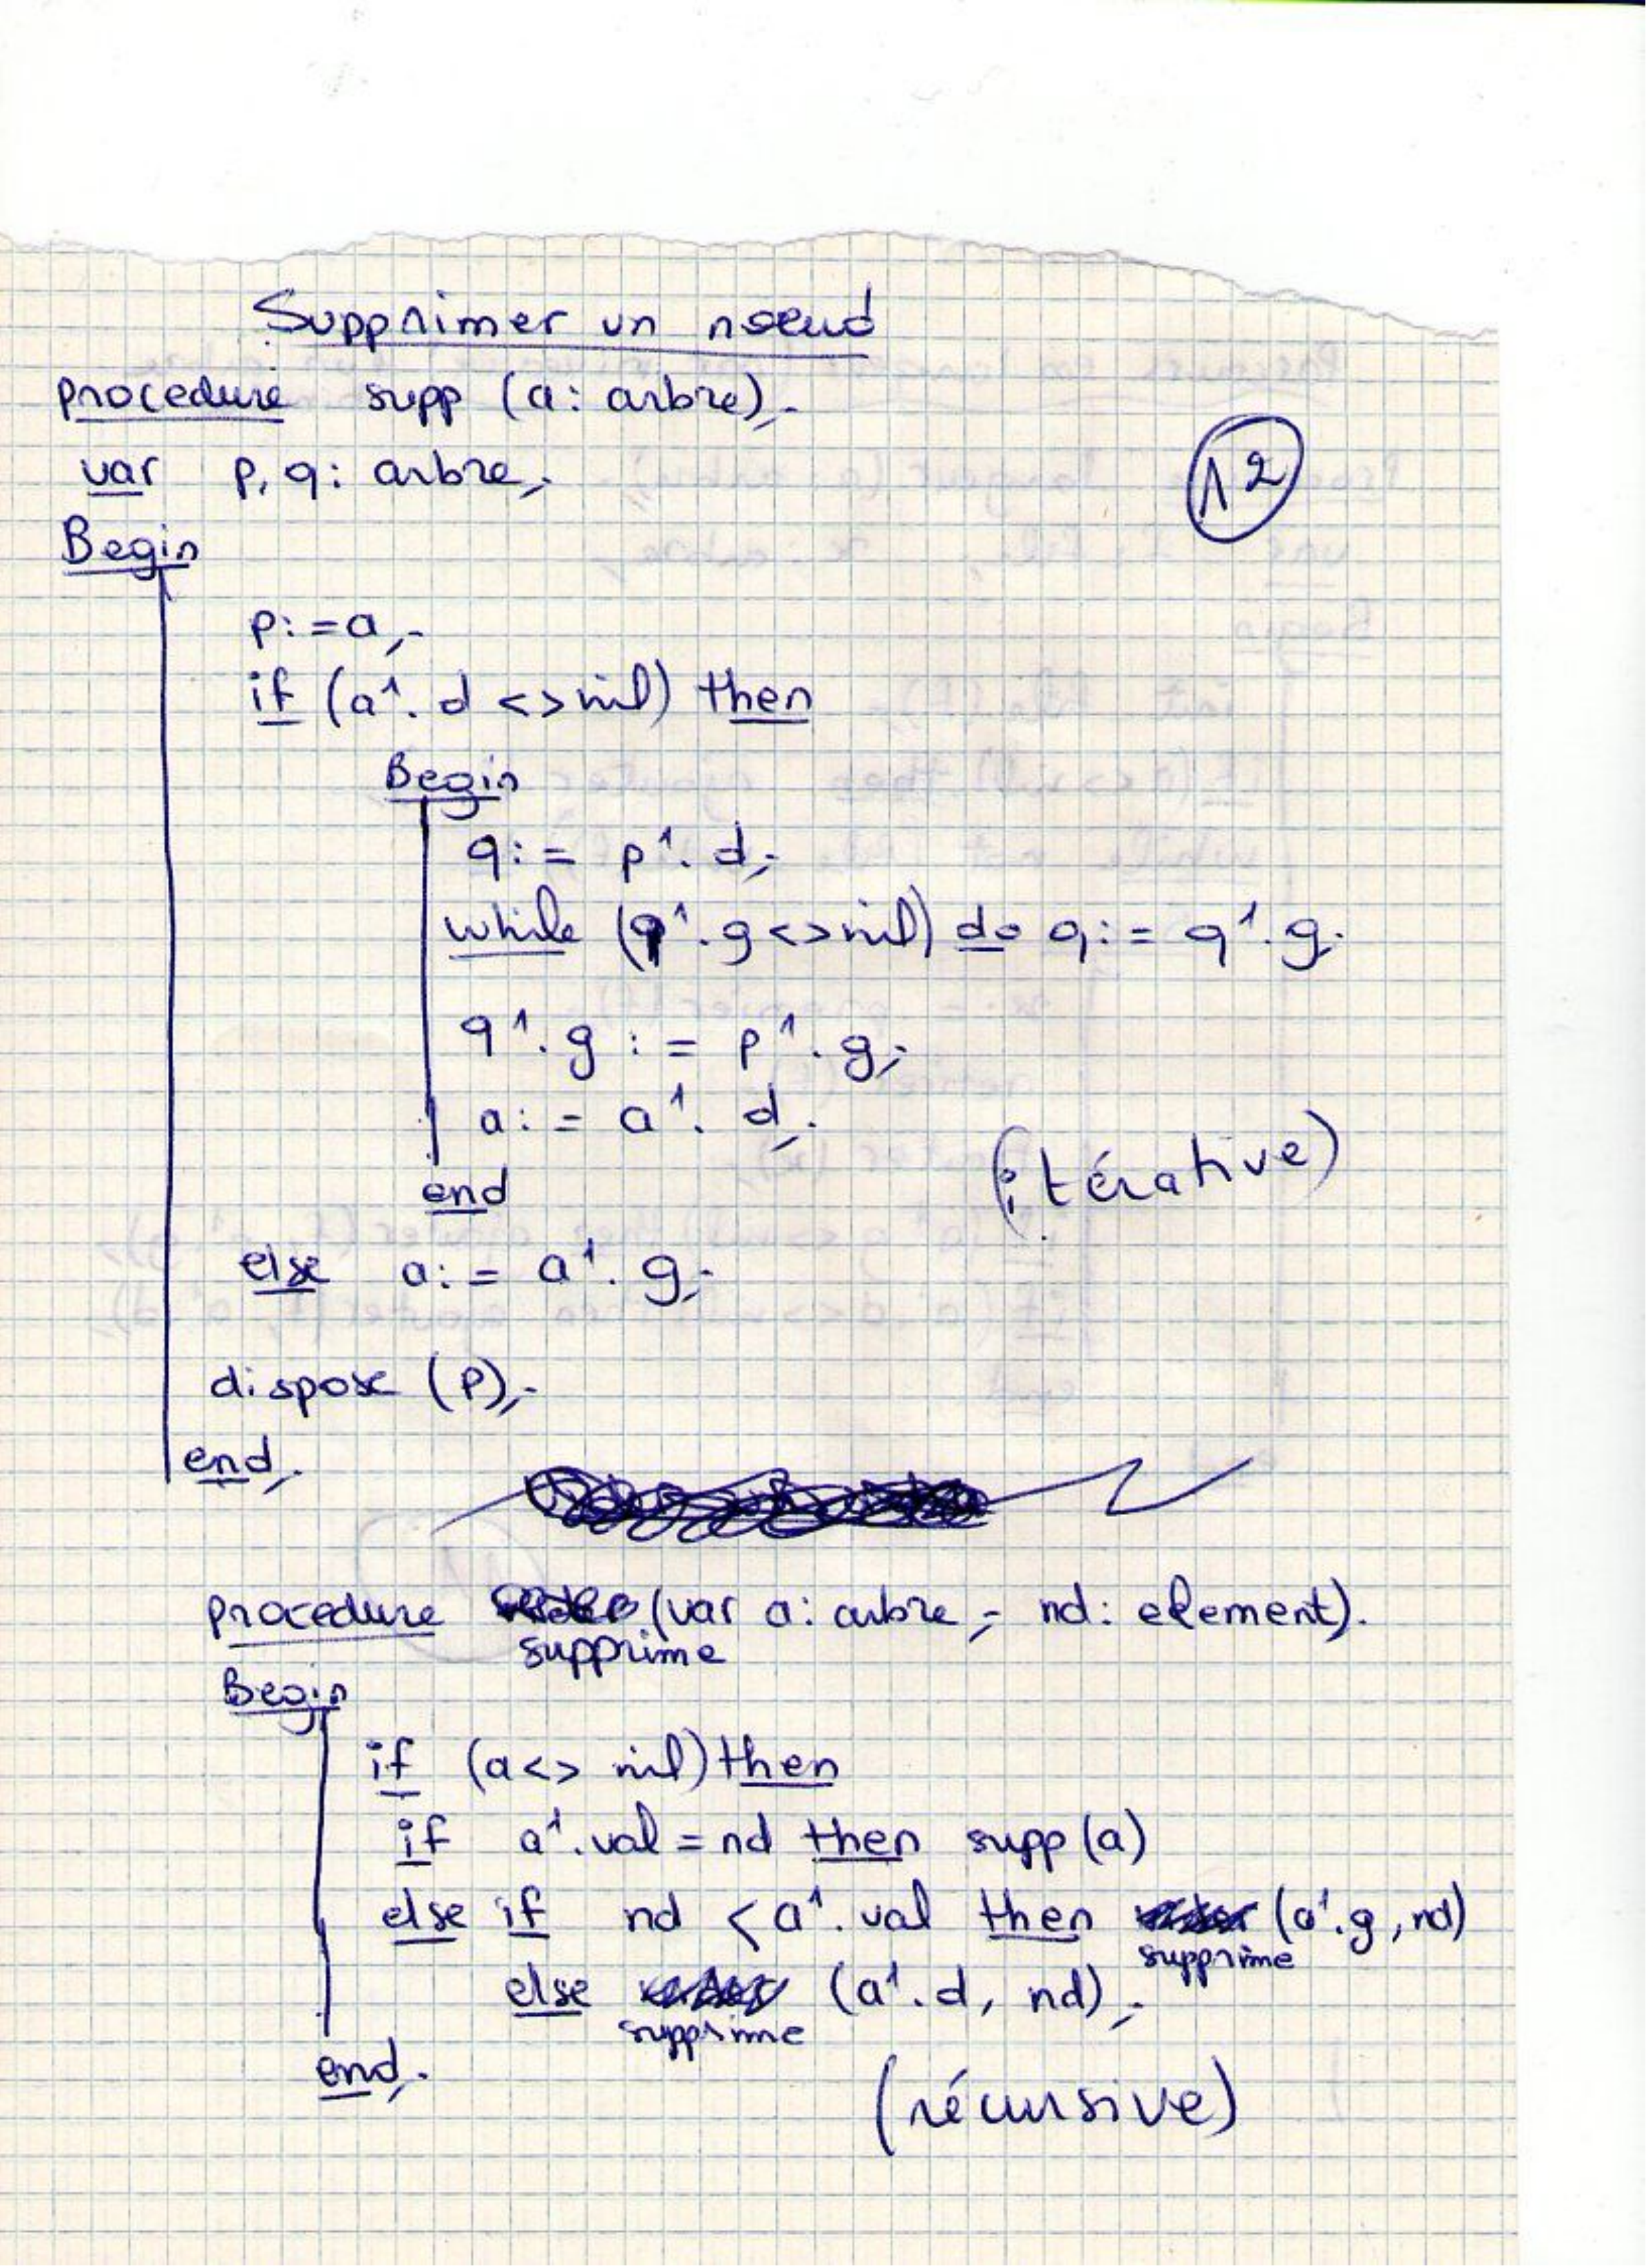 Supprimer un noeud
procedure supp (a: arbre);
var p, q: arbre;
12
Begin
p:=a;
if (a^.d <> nil) then
Begin
q:= p^.d;
while (q^.g <> nil) do q:= q^.g;
q^.g := p^.g;
a:= a^.d;
end
(itérative)
else a:= a^.g;
dispose (p);
end;
procedure supprime (var a: arbre; nd: element).
Begin
if (a <> nil) then
if a^.val = nd then supp (a)
else if nd < a^.val then supprime (a^.g, nd)
else supprime (a^.d, nd);
end;
(récursive)